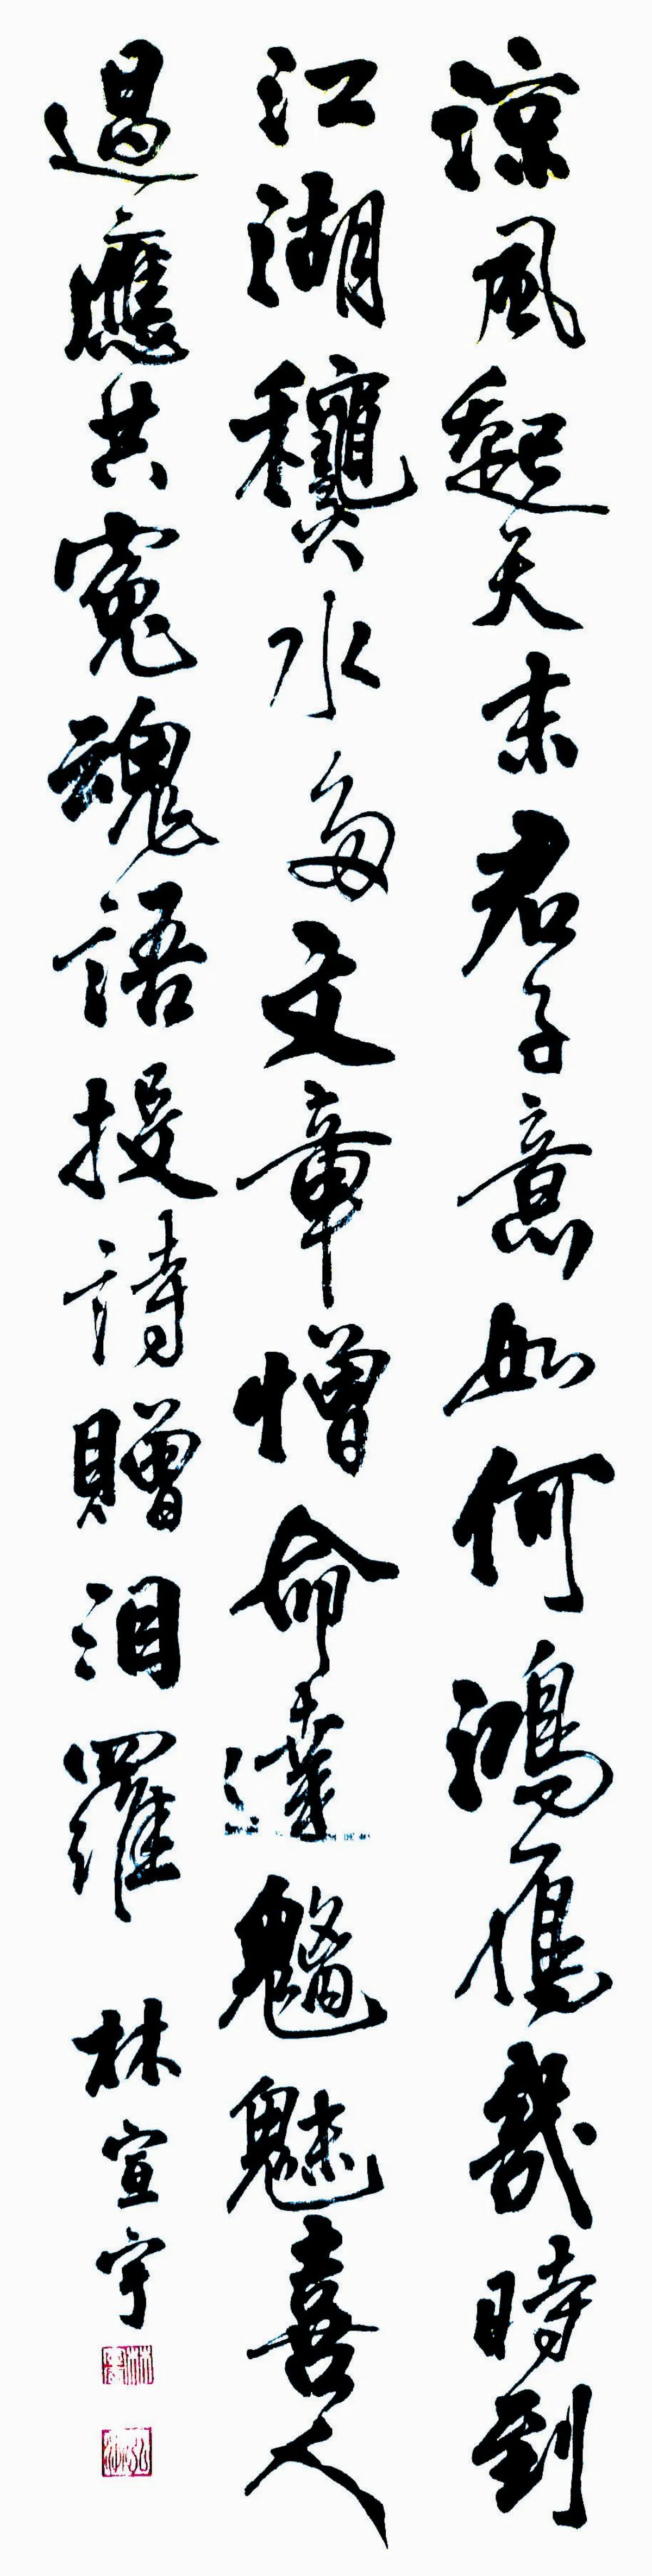 涼風起天末君子意如何鴻雁幾時到
江湖龝水多文章憎命達魑魅喜人
過應共寃魂語投詩贈汨羅 林宣宇